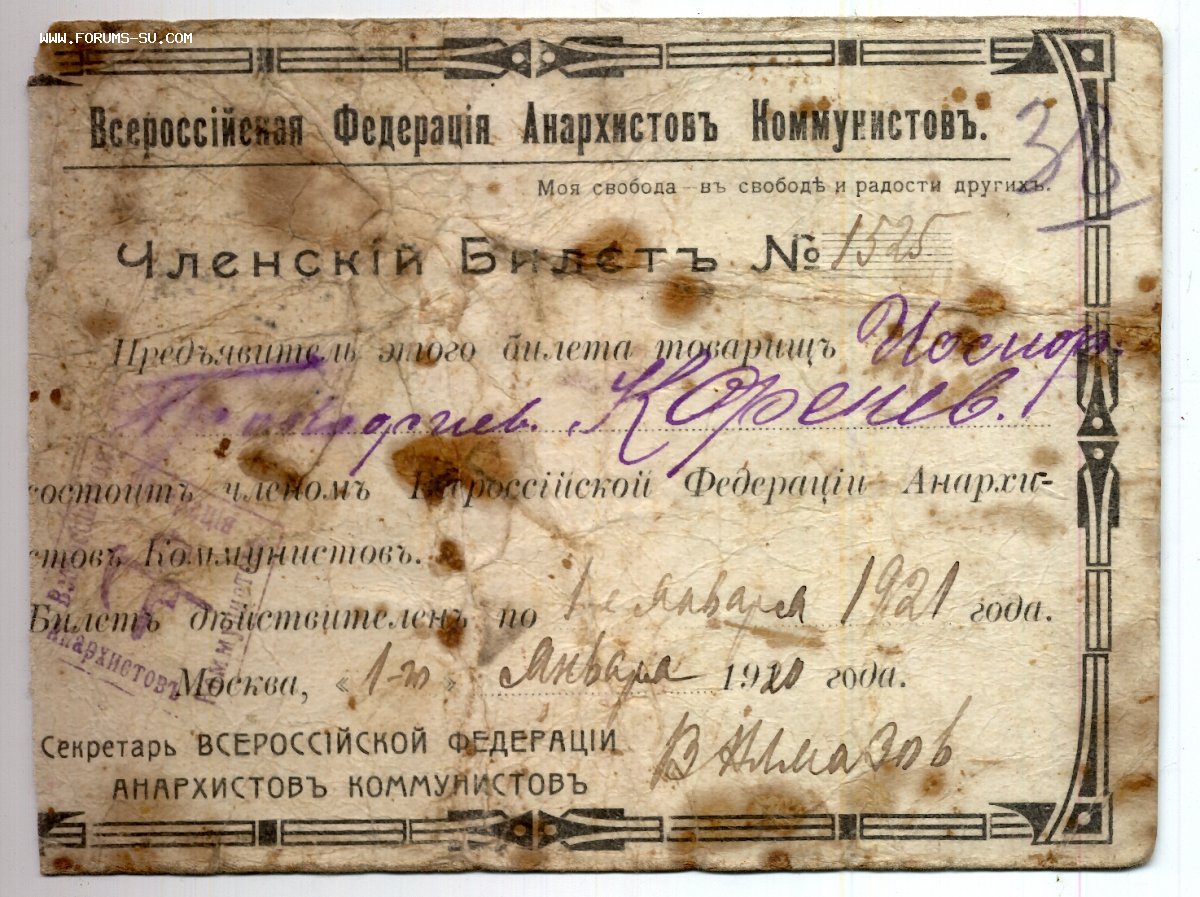 WWW.FORUMS-SU.COM
Всероссійская Федерація Анархистовъ Коммунистовъ.
38
Моя свобода — въ свободѣ и радости другихъ.
Членскій Билетъ № 1525
Предъявитель этого билета товарищъ
Коренев.
состоитъ членомъ Всероссійской Федераціи Анархи-
стовъ Коммунистовъ.
Билетъ дѣйствителенъ по 1-е января 1921 года.
Москва, « 1-го » января 1920 года.
Секретарь ВСЕРОССІЙСКОЙ ФЕДЕРАЦІИ
АНАРХИСТОВЪ КОММУНИСТОВЪ
В Алмазов
Анархистовъ